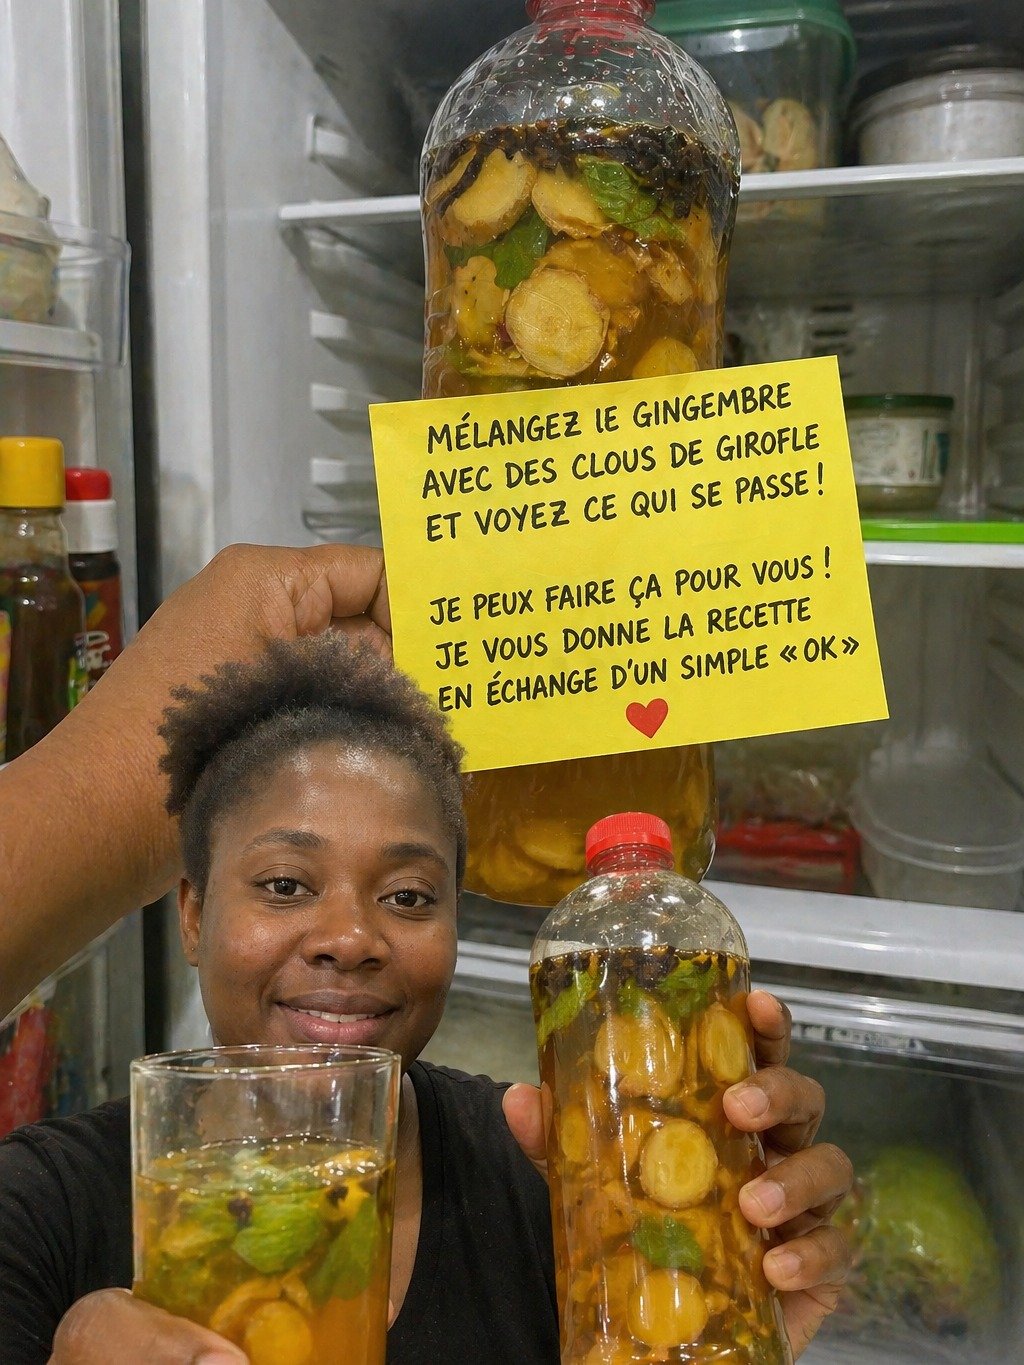 MÉLANGEZ lE GINGEMBRE
AVEC DES CLOUS DE GIROFLE
ET VOYEZ CE QUI SE PASSE !
JE PEUX FAIRE ÇA POUR VOUS !
JE VOUS DONNE LA RECETTE
EN ÉCHANGE D'UN SIMPLE «OK»